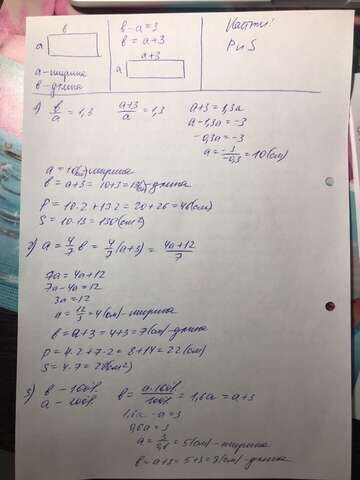 в
а
а - ширина
в - длина
в - а = 3
в = а + 3
а + 3
а
Найти:
P и S
1) в/а = 1,3  (а+3)/а = 1,3  а + 3 = 1,3а
а - 1,3а = -3
-0,3а = -3
а = -3/-0,3 = 10 (см)
а = 10 (см) - ширина
в = а + 3 = 10 + 3 = 13 (см) - длина
P = 10·2 + 13·2 = 20 + 26 = 46 (см)
S = 10·13 = 130 (см²)
2) а = 4/7 в = 4/7 (а+3) = (4а+12)/7
7а = 4а + 12
7а - 4а = 12
3а = 12
а = 12/3 = 4 (см) - ширина
в = а + 3 = 4 + 3 = 7 (см) - длина
P = 4·2 + 7·2 = 8 + 14 = 22 (см)
S = 4·7 = 28 (см²)
3) в - 160%  в = а·160%/100% = 1,6а = а + 3
а - 100%
1,6а - а = 3
0,6а = 3
а = 3/0,6 = 5 (см) - ширина
в = а + 3 = 5 + 3 = 8 (см) - длина